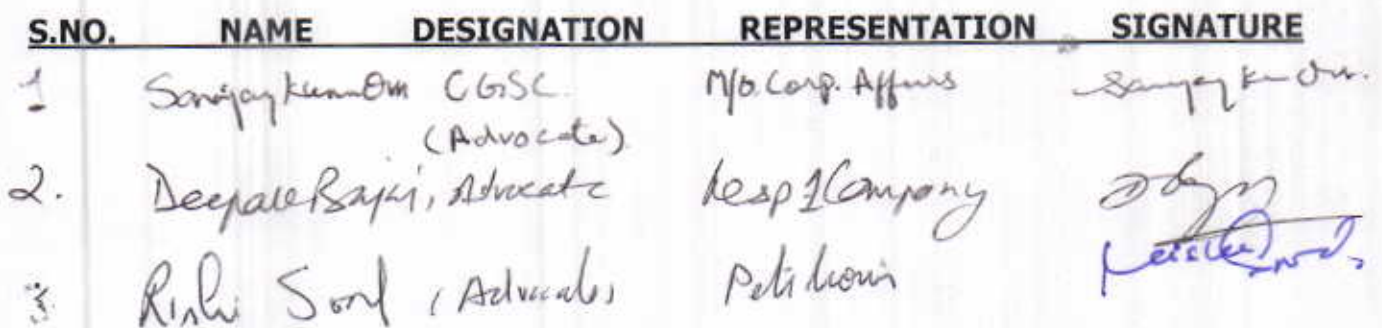 S.NO. NAME DESIGNATION REPRESENTATION SIGNATURE
1 Sanjay Kumar Om CGSC. M/o. Corp. Affairs Sanjay Kr Om.
(Advocate)
2. Deepak Bajaj, Advocate Resp 1 Company
3. Rishi Sood, Advocate, Petitioner Rishi Sood